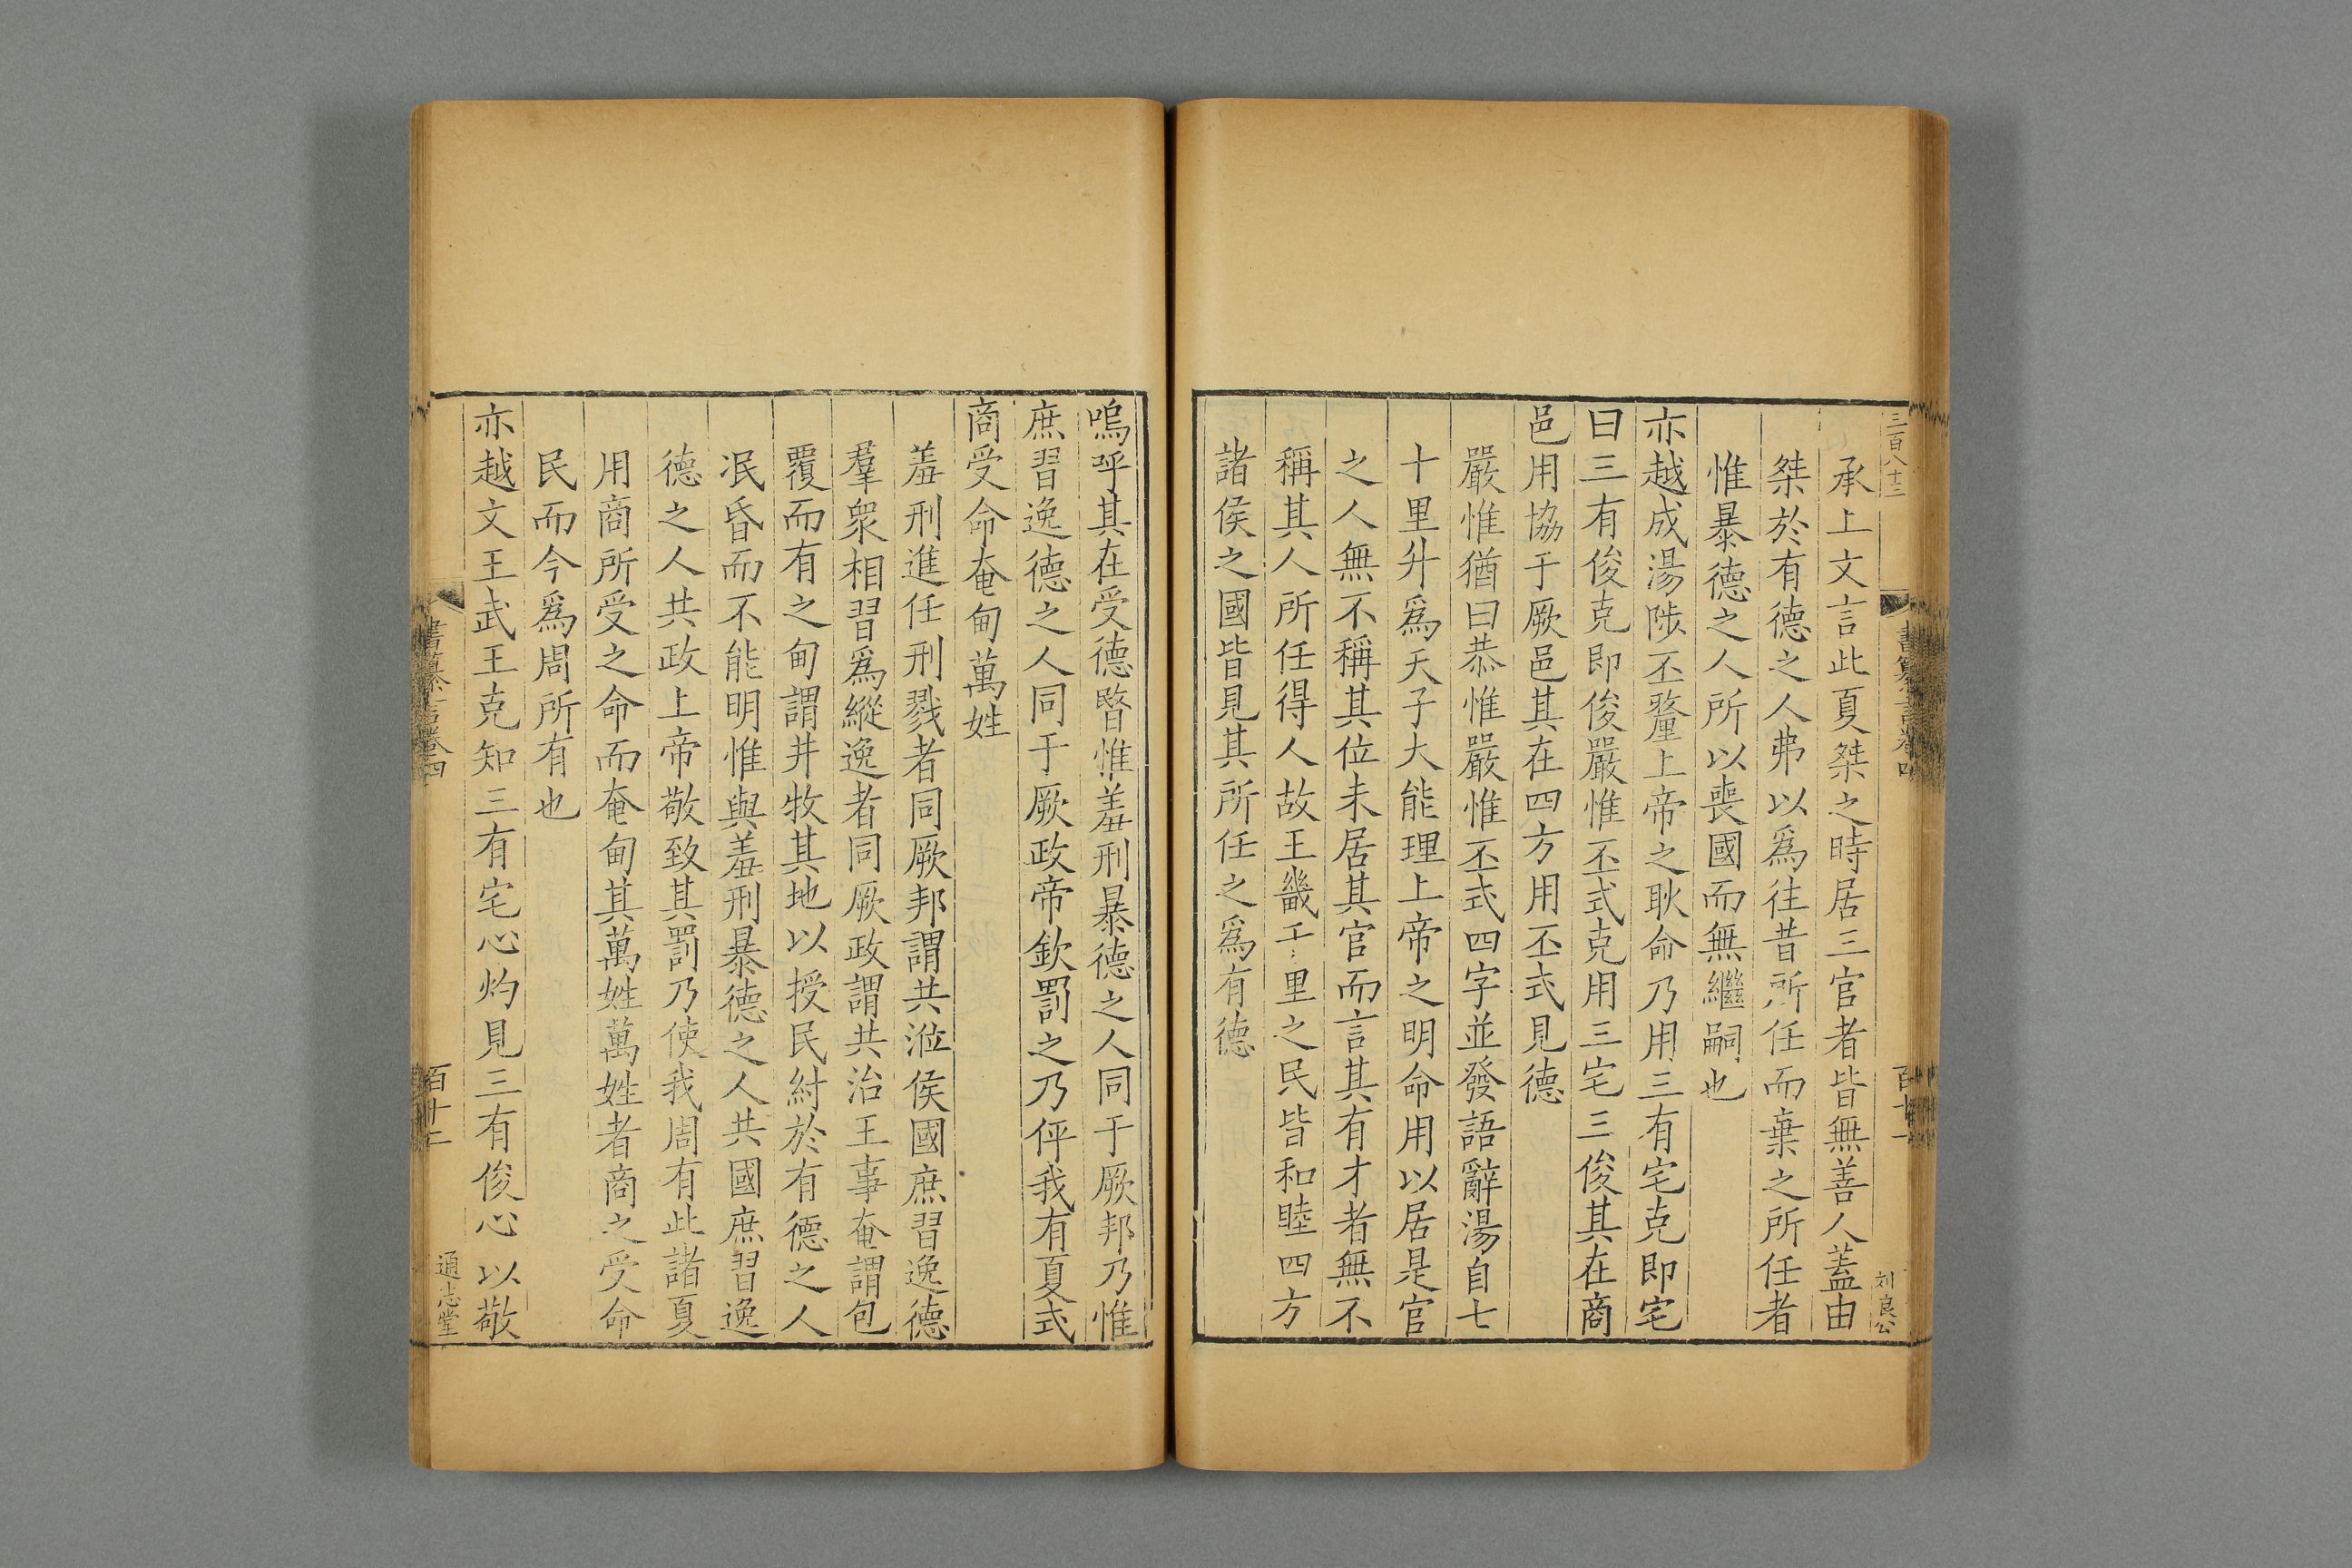 三百八十三
書纂言卷四
百十一
刘良公
承上文言此夏桀之時居三官者皆無善人蓋由
桀於有德之人弗以爲往昔所任而棄之所任者
惟暴德之人所以喪國而無繼嗣也
亦越成湯陟丕釐上帝之耿命乃用三有宅克即宅
曰三有俊克即俊嚴惟丕式克用三宅三俊其在商
邑用協于厥邑其在四方用丕式見德
嚴惟猶曰恭惟嚴惟丕式四字並發語辭湯自七
十里升爲天子大能理上帝之明命用以居是官
之人無不稱其位未居其官而言其有才者無不
稱其人所任得人故王畿千里之民皆和睦四方
諸侯之國皆見其所任之爲有德
嗚呼其在受德暋惟羞刑暴德之人同于厥邦乃惟
庶習逸德之人同于厥政帝欽罰之乃伻我有夏式
商受命奄甸萬姓
羞刑進任刑戮者同厥邦謂共涖侯國庶習逸德
羣衆相習爲縱逸者同厥政謂共治王事奄謂包
覆而有之甸謂井牧其地以授民紂於有德之人
泯昏而不能明惟與羞刑暴德之人共國庶習逸
德之人共政上帝敬致其罰乃使我周有此諸夏
用商所受之命而奄甸其萬姓萬姓者商之受命
民而今爲周所有也
亦越文王武王克知三有宅心灼見三有俊心以敬
書纂言卷四
百十二
通志堂